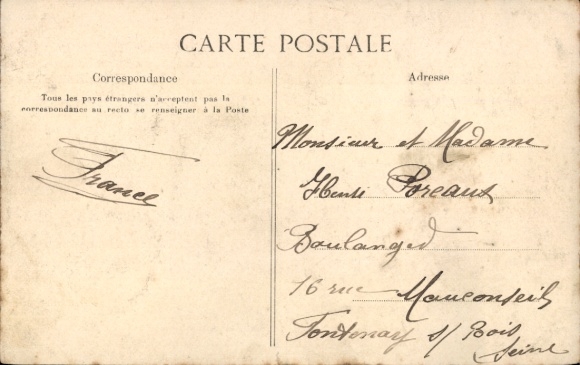 CARTE POSTALE
Correspondance
Tous les pays étrangers n'acceptent pas la
correspondance au recto se renseigner à la Poste
France
Adresse
Monsieur et Madame
Henri Poreaux
Boulanger
16 rue Mauconseil
Fontenay s/ Bois
Seine